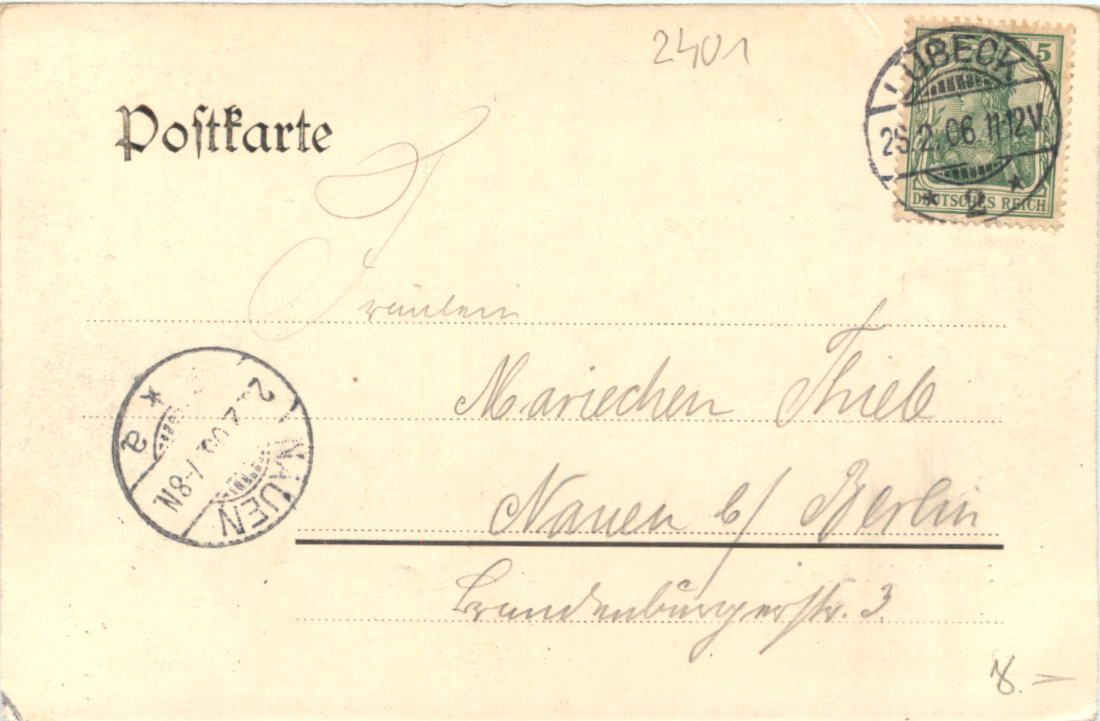 2401
5
LÜBECK
26.2.06.11-12V.
* 2 *
DEUTSCHES REICH
Postkarte
Fräulein
Mariechen Thiele
Nauen b/ Berlin
Brandenburgerstr. 3.
NAUEN
7-8N.
* a
8.-